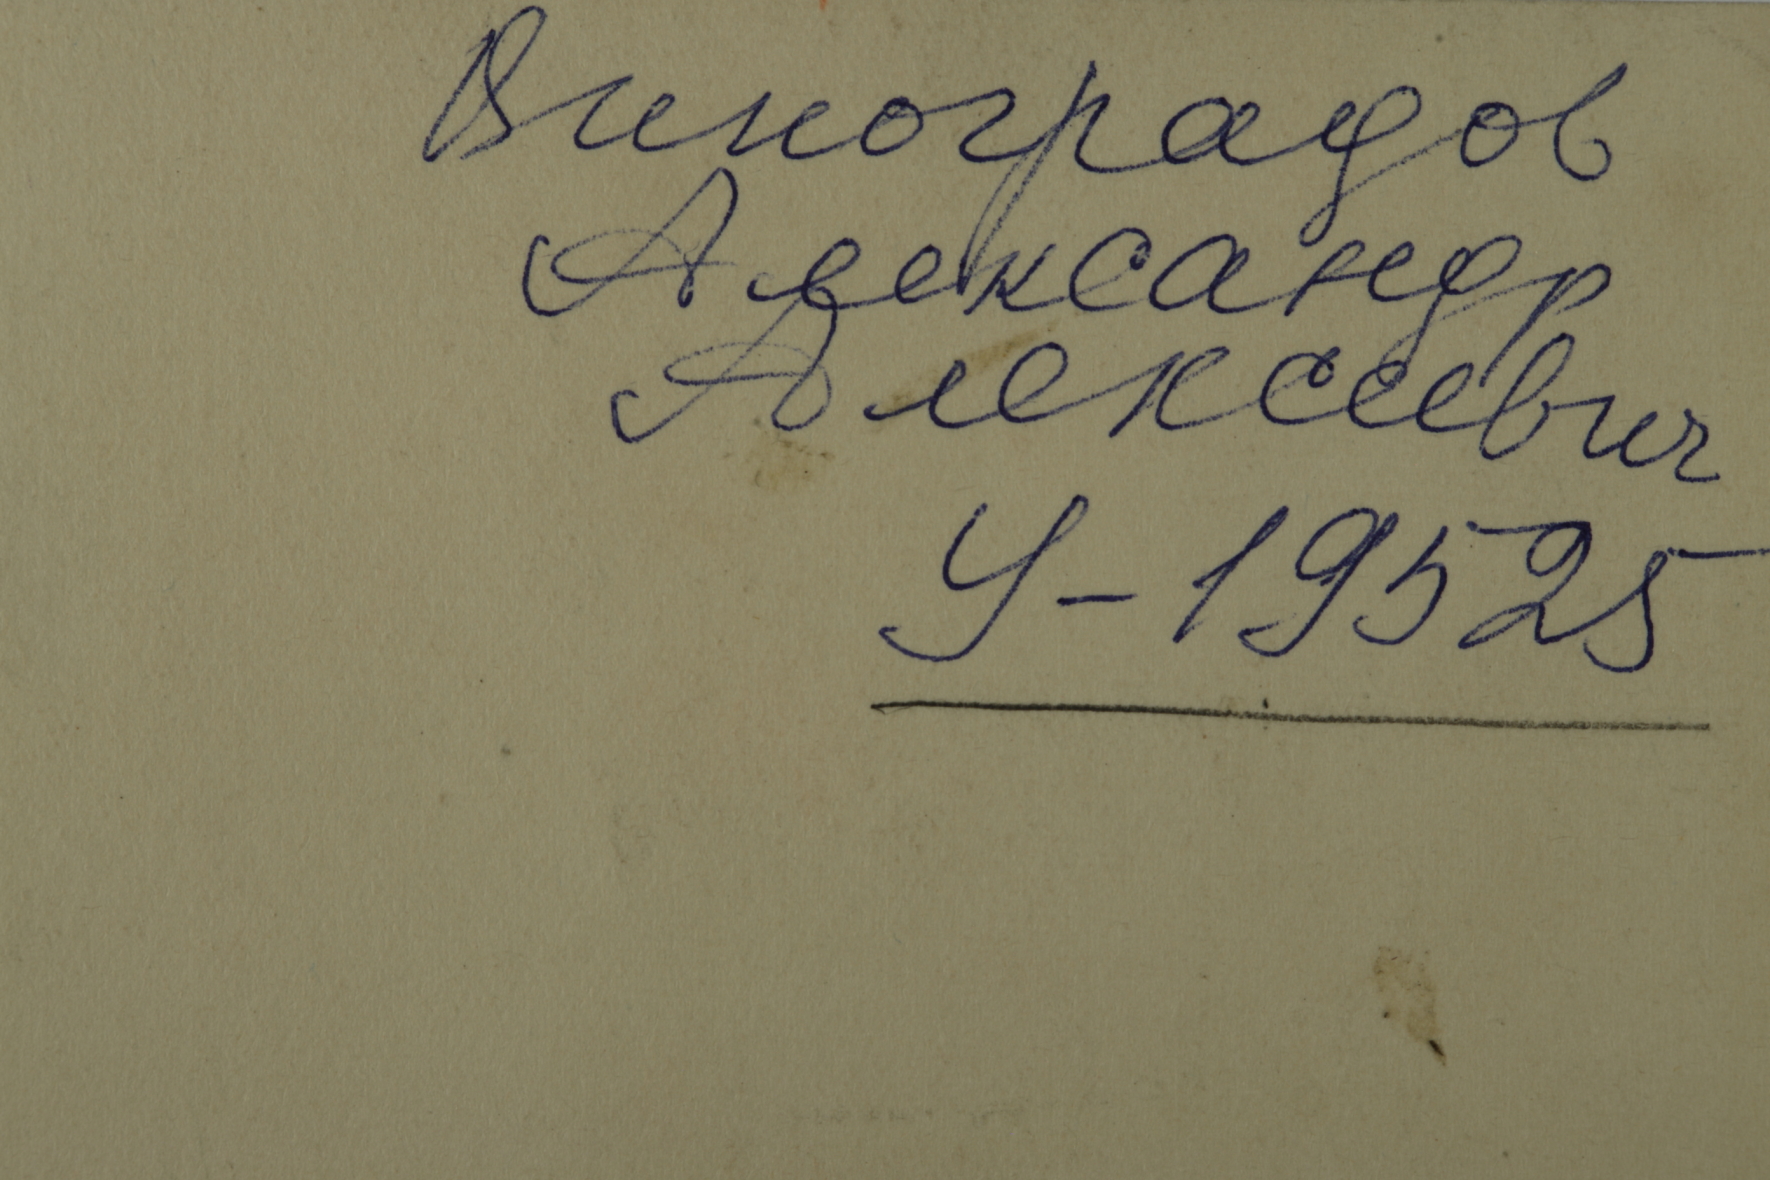 Виноградов
Александр
Алексеевич
У-19525